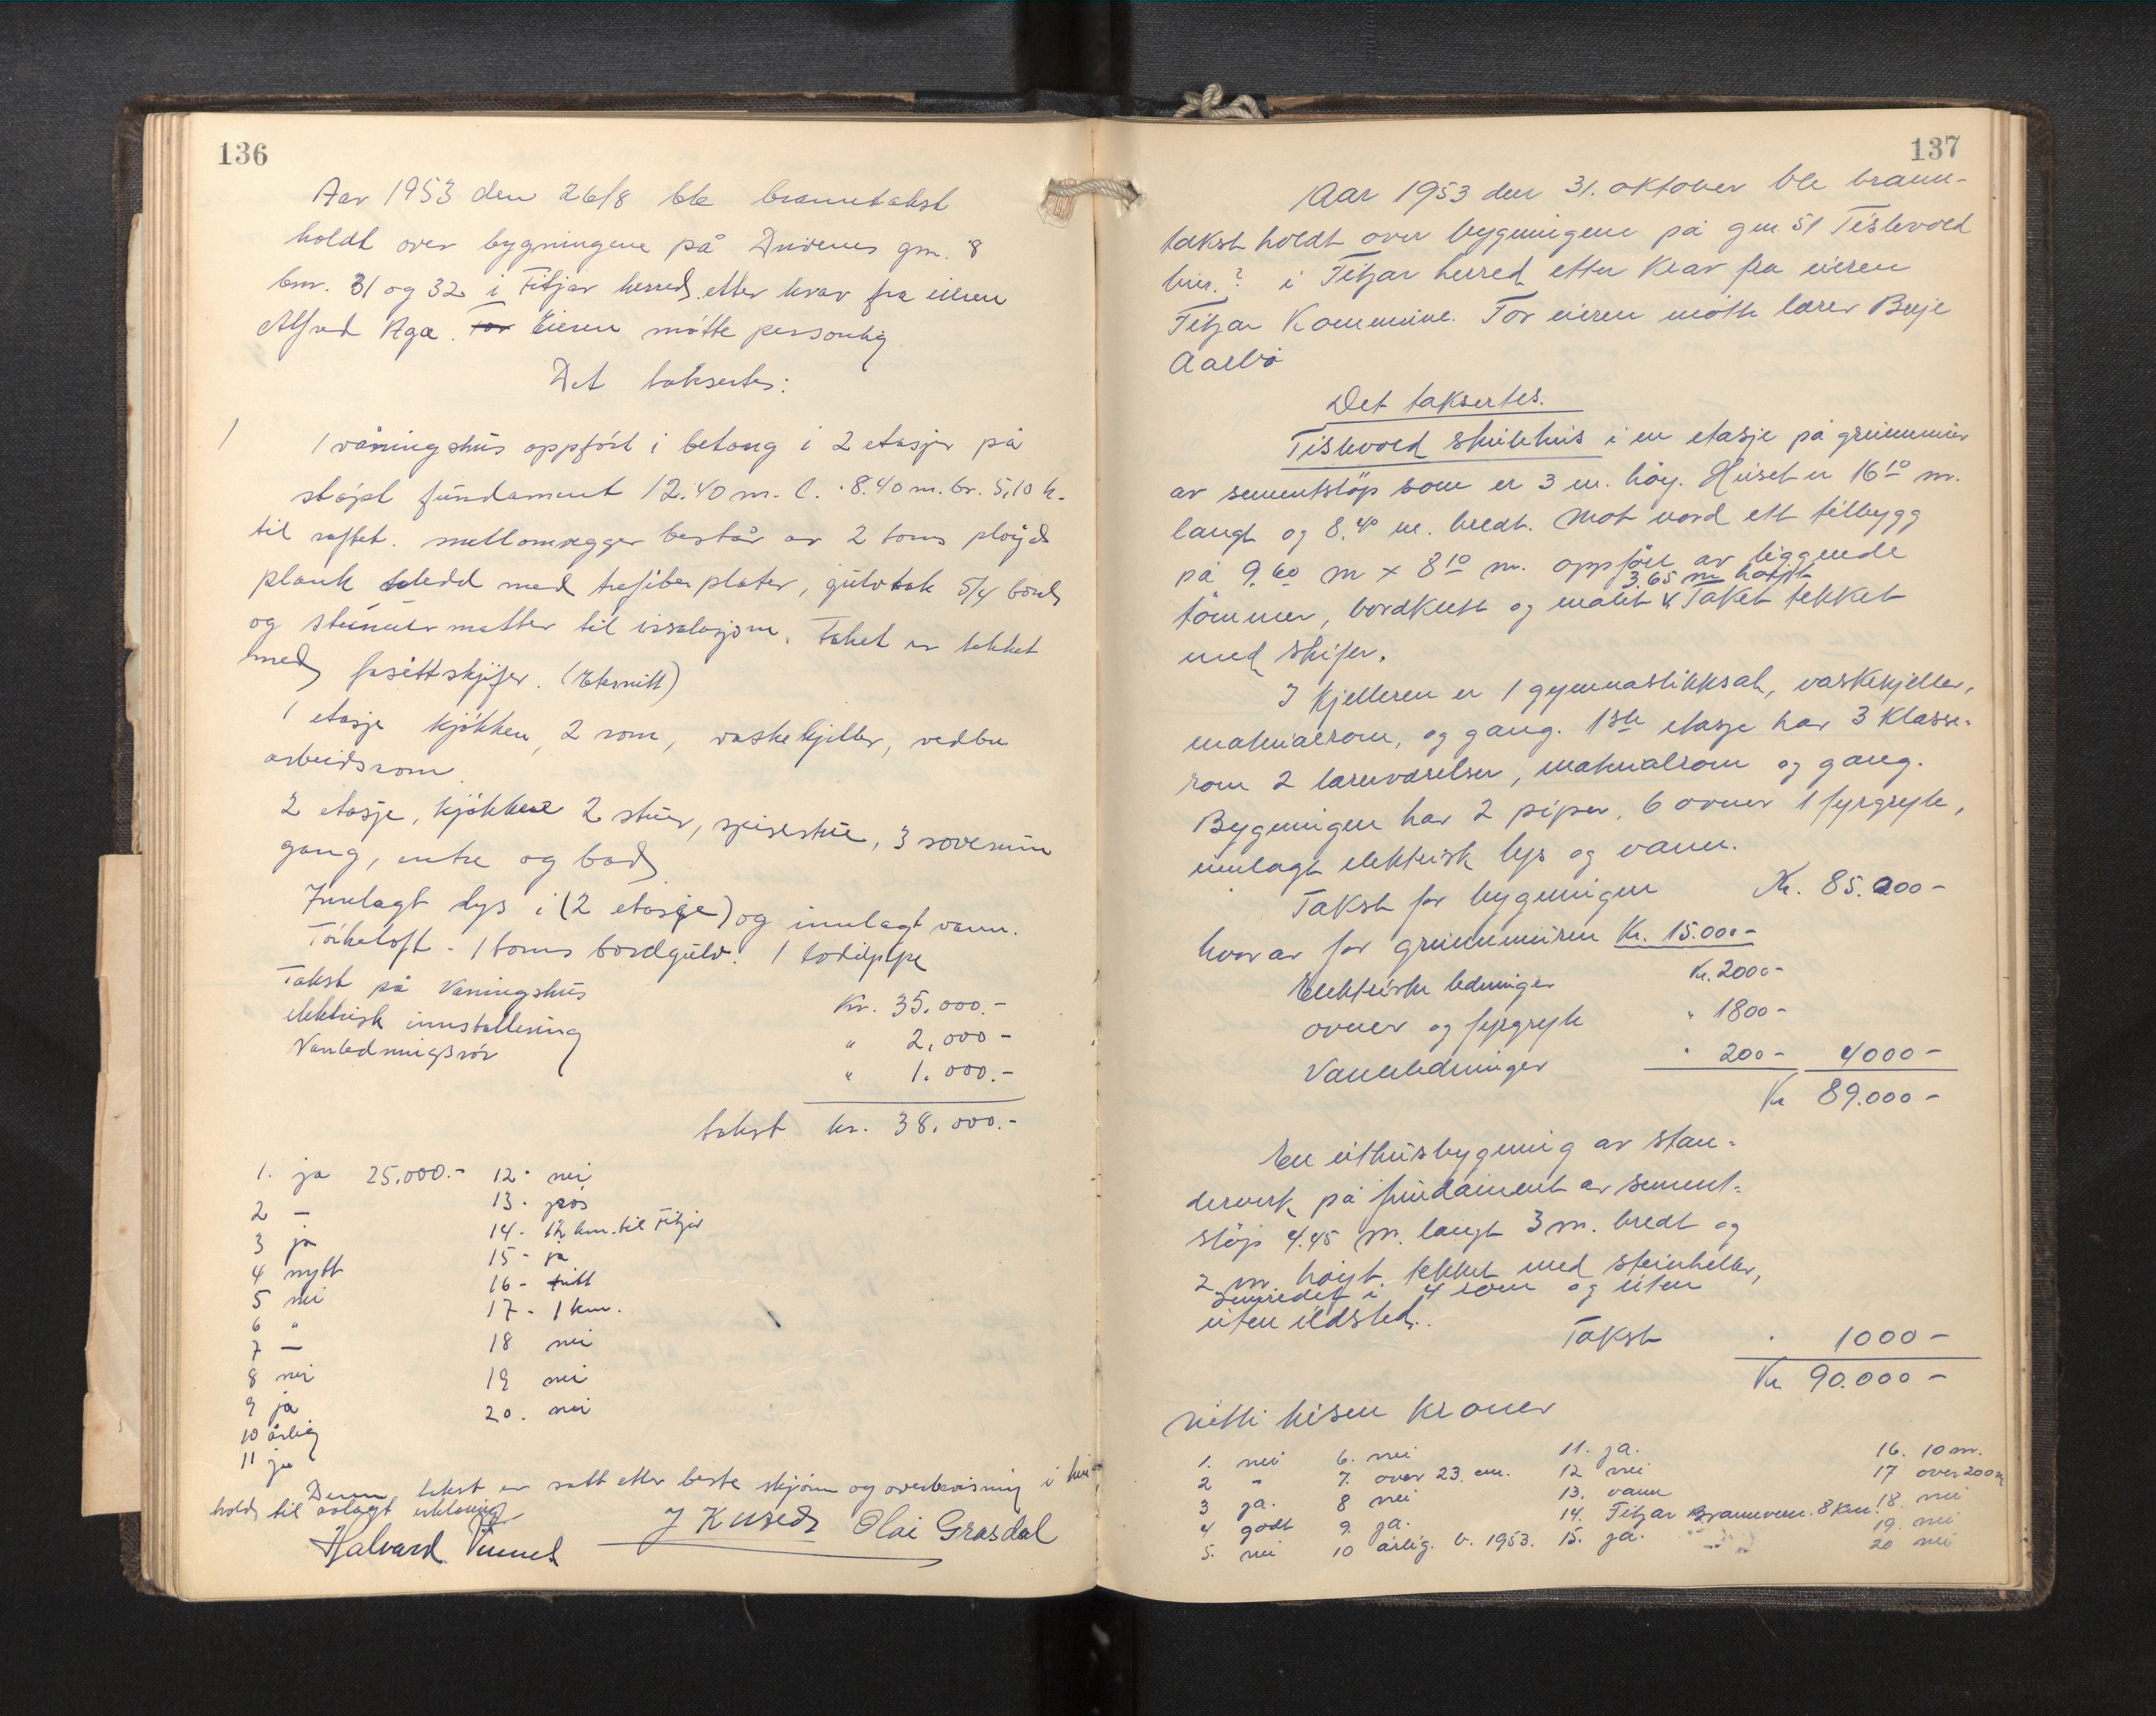 136
Aar 1953 den 26/8 ble branntakst
holdt over bygningene på Drivenes gnr. 8
bnr. 31 og 32 i Fitjar herred etter krav fra eieren
Alfred Aga. For Eieren møtte personlig
Det taksertes:
1 1 våningshus oppført i betong i 2 etasjer på
støpt fundament 12.40 m. l. 8.40 m. br. 5,10 h.
til raftet. mellomvegger består av 2 toms pløyde
plank kledd med trefiberplater, gulv tak 5/4 bord
og steinullmatter til issolasjon. Taket er tekket
med fasettskifer. (Eternitt)
1 etasje kjøkken, 2 rom, vaskekjeller, vedbu
arbeidsrom.
2 etasje, kjøkken 2 stuer, spisestue, 3 soverum
gang, entre og bad
Innlagt lys i (2 etasje) og innlagt vann.
Tørkeloft - 1 toms bordgulv. 1 pipe
Takst på Våningshus Kr. 35.000.-
elektrisk innstallering " 2,000 -
Vanledningsrør " 1.000.-
takst kr. 38.000.-
1. ja 25.000.- 12 - nei
2 — 13 -
3 ja 14 - 12 km. til Fitjar
4 nytt 15 - ja
5 nei 16 -
6 " 17 - 1 km.
7 — 18 nei
8 nei 19 nei
9 ja 20. nei
10 årlig
11 ja
Denne takst er satt etter beste skjønn og overbevisning i hen-
hold til avlagt erklæring
Halvard J Olai Grasdal
137
Aar 1953 den 31. oktober ble brann-
takst holdt over bygningene på gnr 51 Tislevold
bnr. ? i Fitjar herred etter krav fra eieren
Fitjar Kommune. For eieren møtte lærer Børje
Aarbø
Det taksertes.
Tislevold skulehus i en etasje på grunnmur
av sementstøp som er 3 m. høy. Huset er 16 10 m.
langt og 8.40 m. bredt. Mot nord ett tilbygg
på 9.60 m x 8 10 m. oppført av liggende
3.65 m høgdt
tømmer, bordkledt og malt. Taket tekket
med skifer.
I kjelleren er 1 gymnastikksal, vaskekjeller,
materialrom, og gang. 1ste etasje har 3 klasse-
rom 2 lærerværelser, materialrom og gang.
Bygningen har 2 piper, 6 ovner 1 fyrgryte,
innlagt elektrisk lys og vann.
Takst for bygningen Kr. 85.000 -
hvorav for grunnmuren Kr. 15.000 -
Elektriske ledninger Kr. 2000 -
ovner og fyrgryte " 1800 -
Vannledninger " 200 - 4000 -
Kr 89.000 -
En uthusbygning av stan-
derverk på fundament av sement-
støp 4.45 m. langt 3 m. bredt og
2 m. høyt. tekket med steinheller,
innredet i 4 rom og uten
uten ildsted.
Takst 1000 -
Kr 90.000 -
nitti tusen kroner
1. nei 6. nei 11. ja. 16. 10 m.
2 " 7. over 23. cm. 12 nei 17 over 200 m
3 ja. 8 nei 13. vann 18. nei
4 godt 9. ja. 14. Fitjar Brannvern. 8 km. 19. nei
5. nei 10 årlig. b. 1953. 15. ja. 20 nei